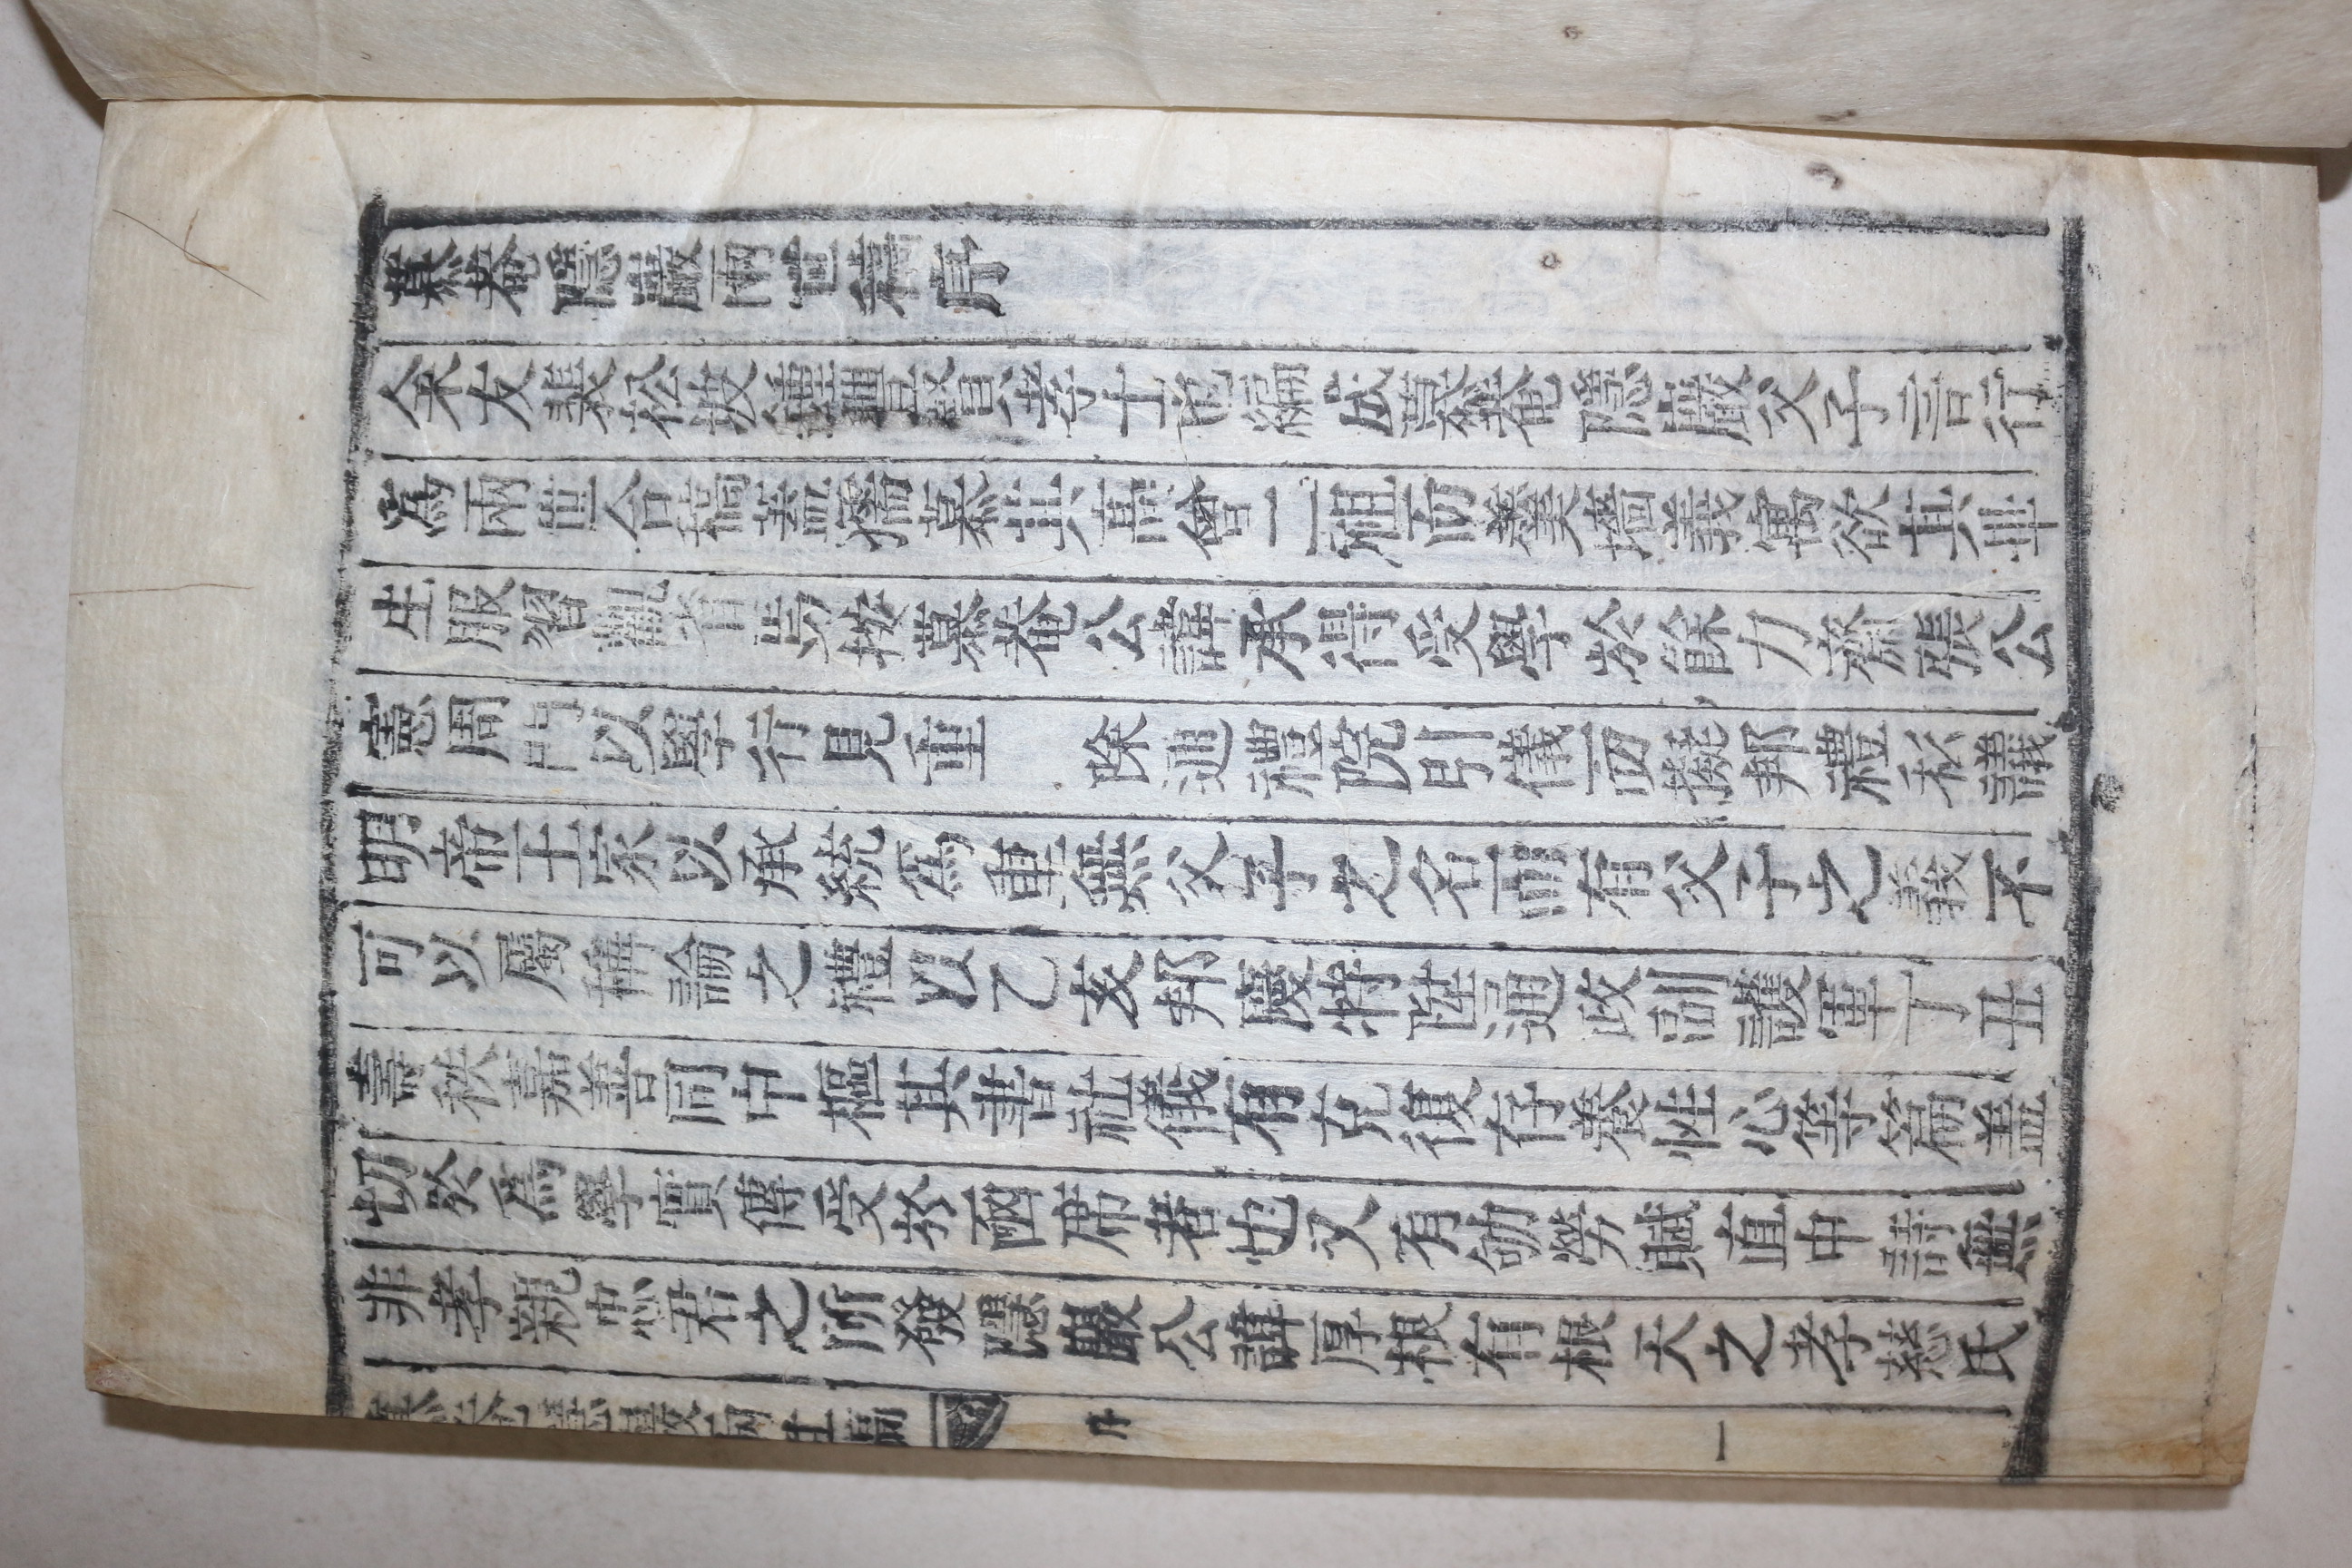 慕菴隱巖兩世稿序
余友裴松坡鍾豐賢孝士也編成慕菴隱巖父子言行
爲兩世合稿蓋孺慕其高曾二祖而羹墻義寓欲其畢
生服習觀省焉按慕菴公諱承得受學於餘力齋張公
憲周門以學行見重 除通禮院引儀而擬邦禮私議
明帝王家以承統爲重無父子之名而有父子之義不
可以屬稱論之禮以乙亥邦慶特陞通政副護軍丁丑
壽秩嘉善同中樞其書社儀有克復存養性心等篇盖
切於爲學實傳受於函席者也又有劬勞賦直中詩無
非孝親忠君之所發隱巖公諱厚根有根天之孝慈氏
慕菴隱巖兩世稿
序
一